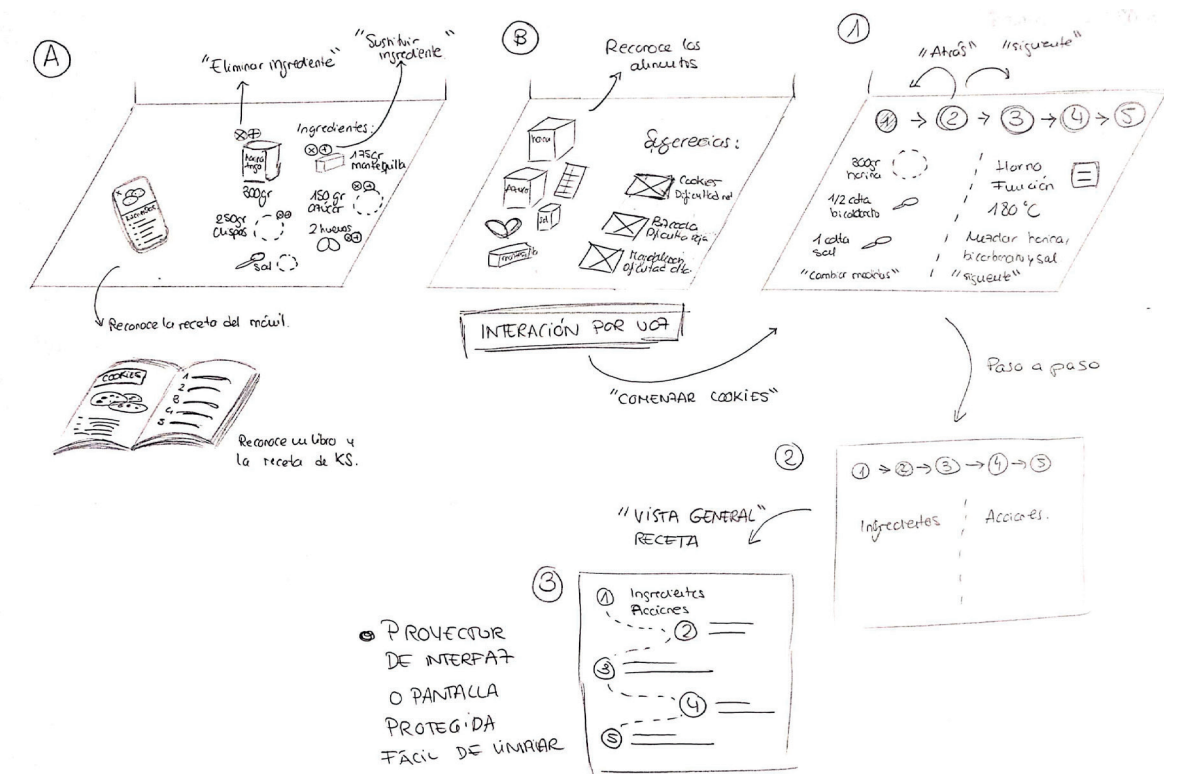 A
"Eliminar ingrediente"
"Sustituir
ingrediente"
Ingredientes:
harina
trigo
300gr
175gr
mantequilla
150 gr
azúcar
250gr
chispas
2 huevos
sal
Reconoce la receta del móvil.
COOKIES
1
2
3
4
5
Reconoce un libro y
la receta de KS.
B
Reconoce los
alimentos
harina
sal
Sugerencias:
Cookies
INTERACIÓN POR VOZ
"COMENZAR COOKIES"
1
"Atrás" "siguiente"
1 → 2 → 3 → 4 → 5
300gr
harina
1/2 cdta
bicarbonato
1 cdta
sal
"Cambiar medidas"
Horno
Función
180°C
Mezclar harina,
bicarbonato y sal
"siguiente"
Paso a paso
2
1 → 2 → 3 → 4 → 5
Ingredientes
Acciones.
"VISTA GENERAL"
RECETA
3
1 Ingredientes
Acciones
2
3
4
5
PROYECTOR
DE INTERFAZ
O PANTALLA
PROTEGIDA
FÁCIL DE LIMPIAR